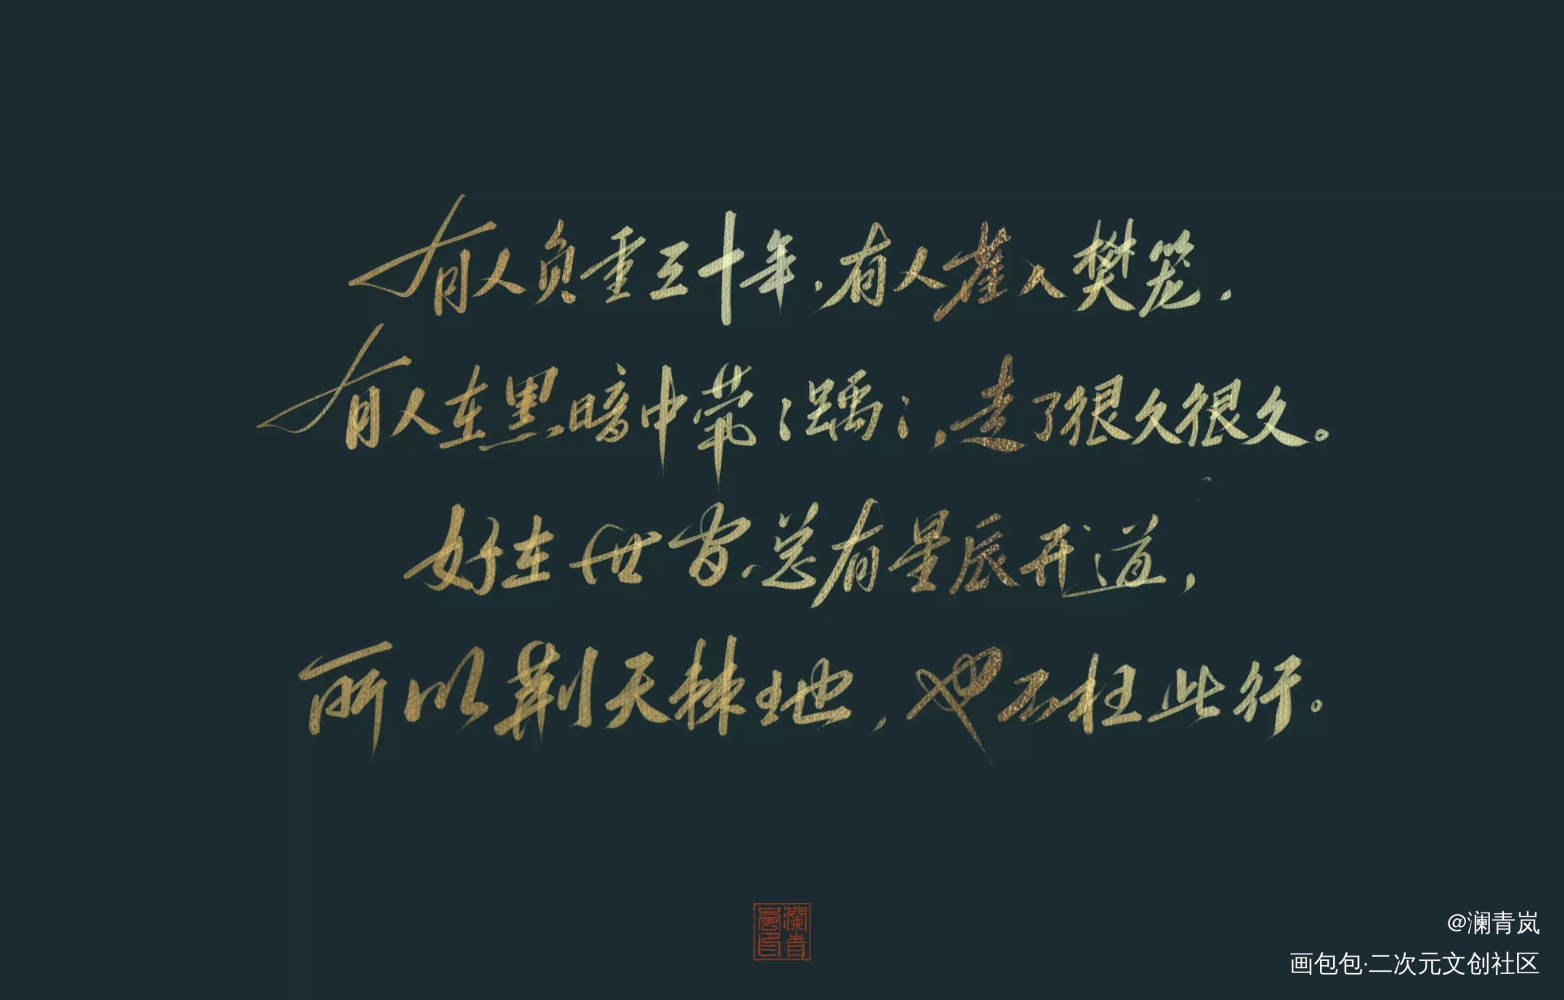 有人负重三十年,有人入樊笼,
有人在黑暗中茕々踽々,走了很久很久。
好在世间总有星辰开道,
所以荆天棘地,也不枉此行。
澜青岚印
@澜青岚
画包包·二次元文创社区